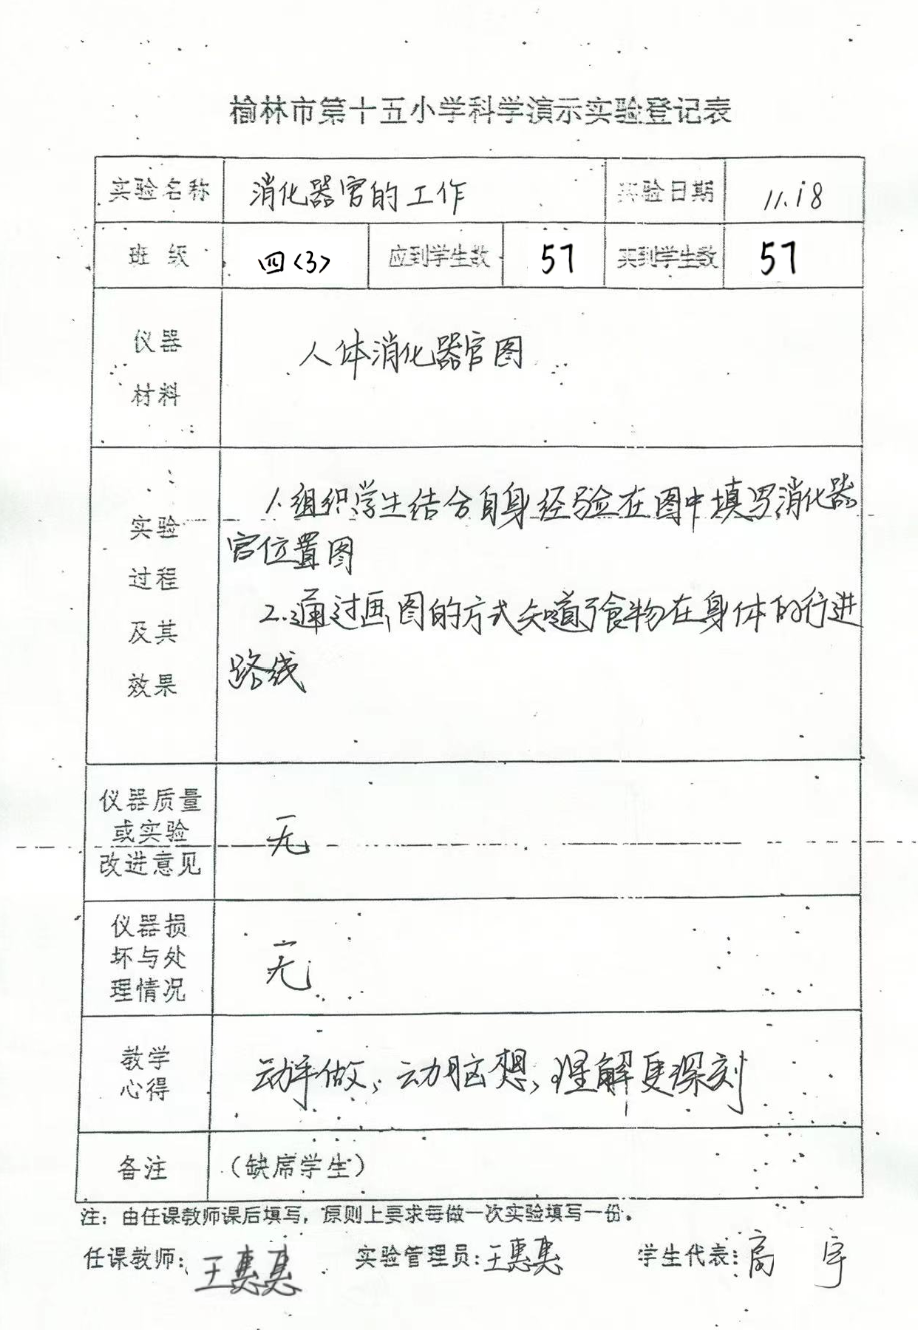 榆林市第十五小学科学演示实验登记表
实验名称 消化器官的工作 实验日期 11.18
班级 四(3) 应到学生数 57 实到学生数 57
仪器
材料
人体消化器官图
实验
过程
及其
效果
1.组织学生结合自身经验在图中填写消化器
官位置图
2.通过画图的方式知道了食物在身体的行进
路线
仪器质量
或实验
改进意见
无
仪器损
坏与处
理情况
无
教学
心得
动手做,动脑想,理解更深刻
备注 (缺席学生)
注:由任课教师课后填写,原则上要求每做一次实验填写一份。
任课教师:王惠惠 实验管理员:王惠惠 学生代表:高宇